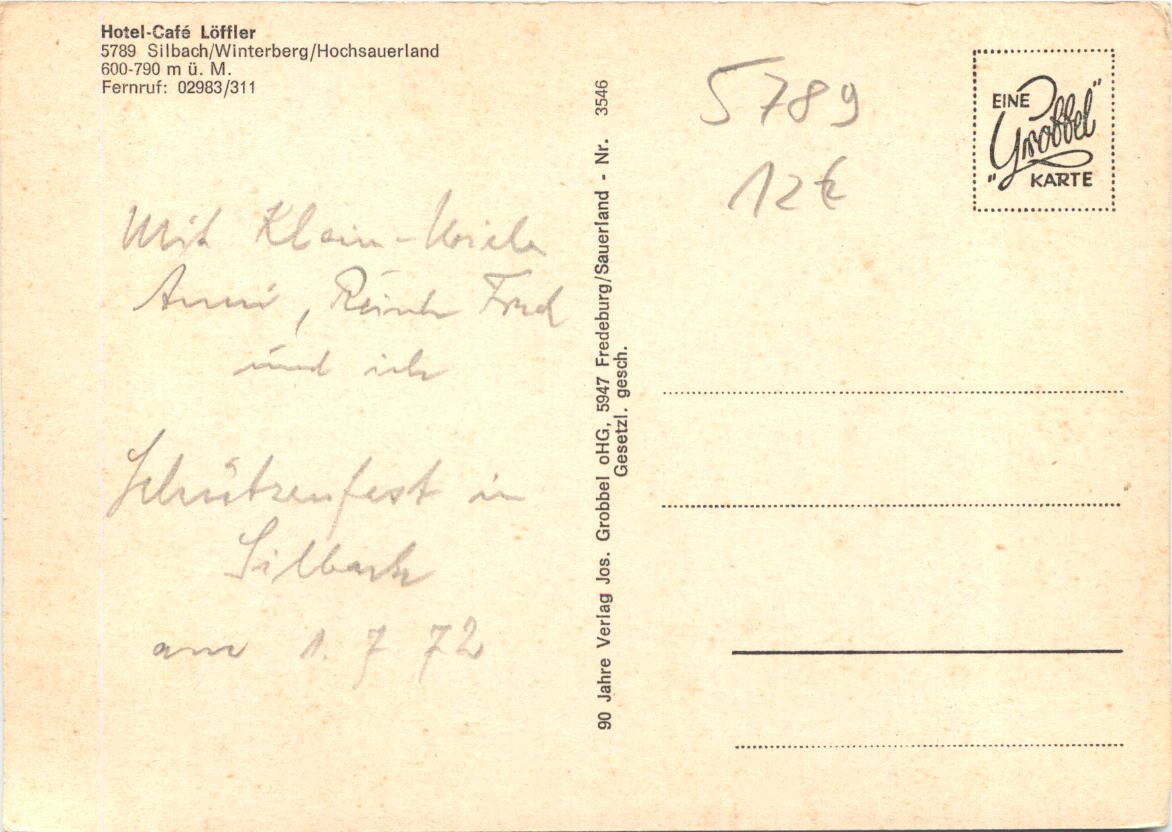 Hotel-Café Löffler
5789 Silbach/Winterberg/Hochsauerland
600-790 m ü. M.
Fernruf: 02983/311
Mit Klein-
Anni,
und ich
Schützenfest in
Silbach
am 1. 7 72
90 Jahre Verlag Jos. Grobbel oHG, 5947 Fredeburg/Sauerland - Nr. 3546
Gesetzl. gesch.
5789
12 €
EINE
"Grobbel"
KARTE